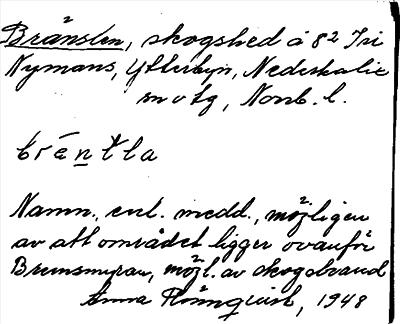 Bränslen, skogshed å 82 Iri
Nymans, Ytterbyn, Nederkalix
sn o tg, Norrb. l.
bréntla
Namn., enl. medd., möjligen
av att området ligger ovanför
Bremsmyran, möjl. av skogsbrand
Anna Rönnqvist, 1948